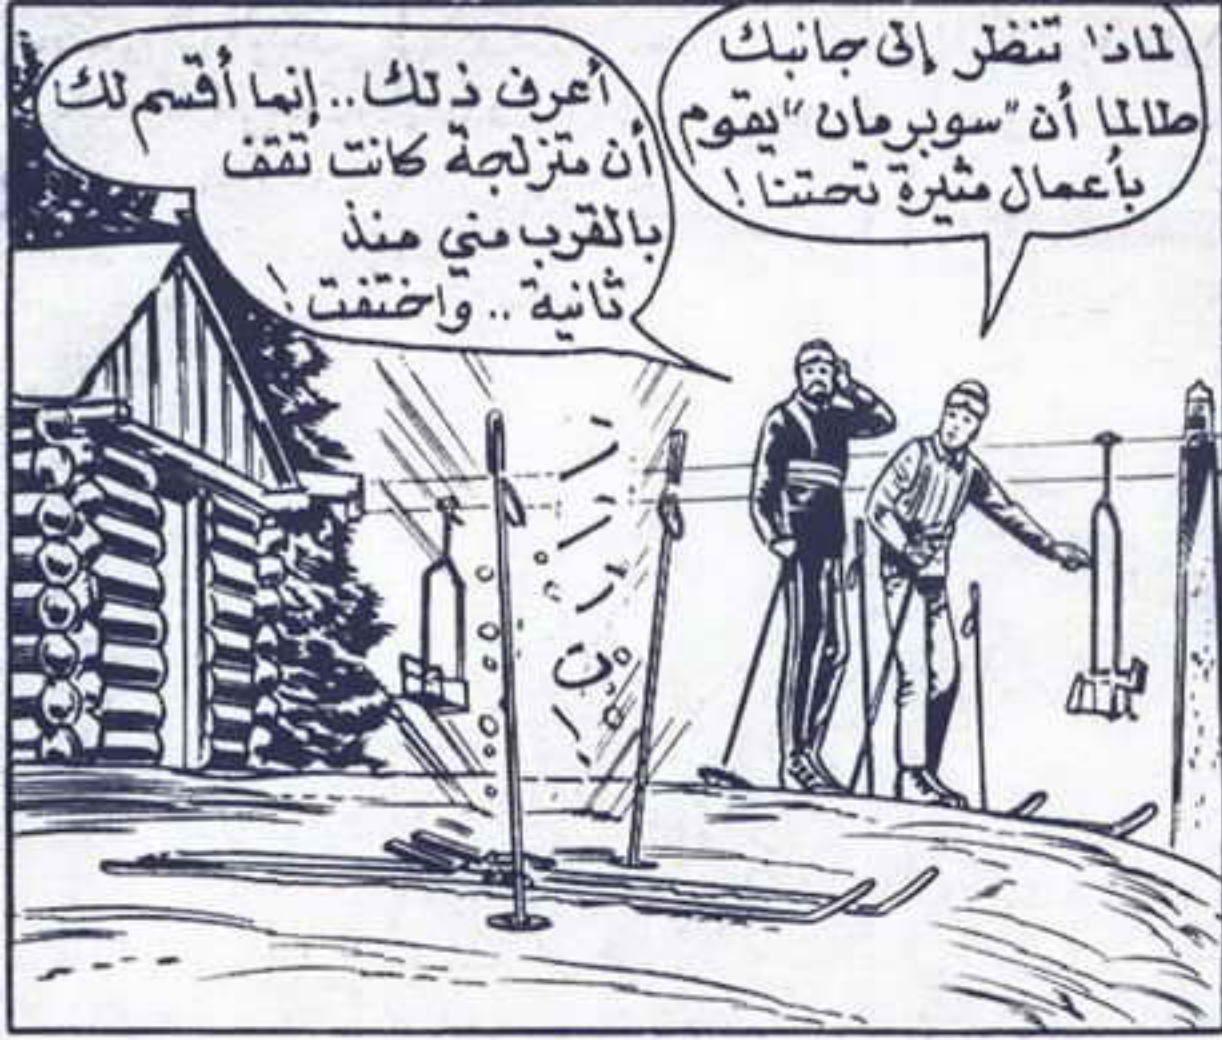 لماذا تنظر إلى جانبك
طالما أن "سوبرمان" يقوم
بأعمال مثيرة تحتنا!
أعرف ذلك.. إنما أقسم لك
أن متزلجة كانت تقف
بالقرب مني منذ
ثانية.. واختفت!